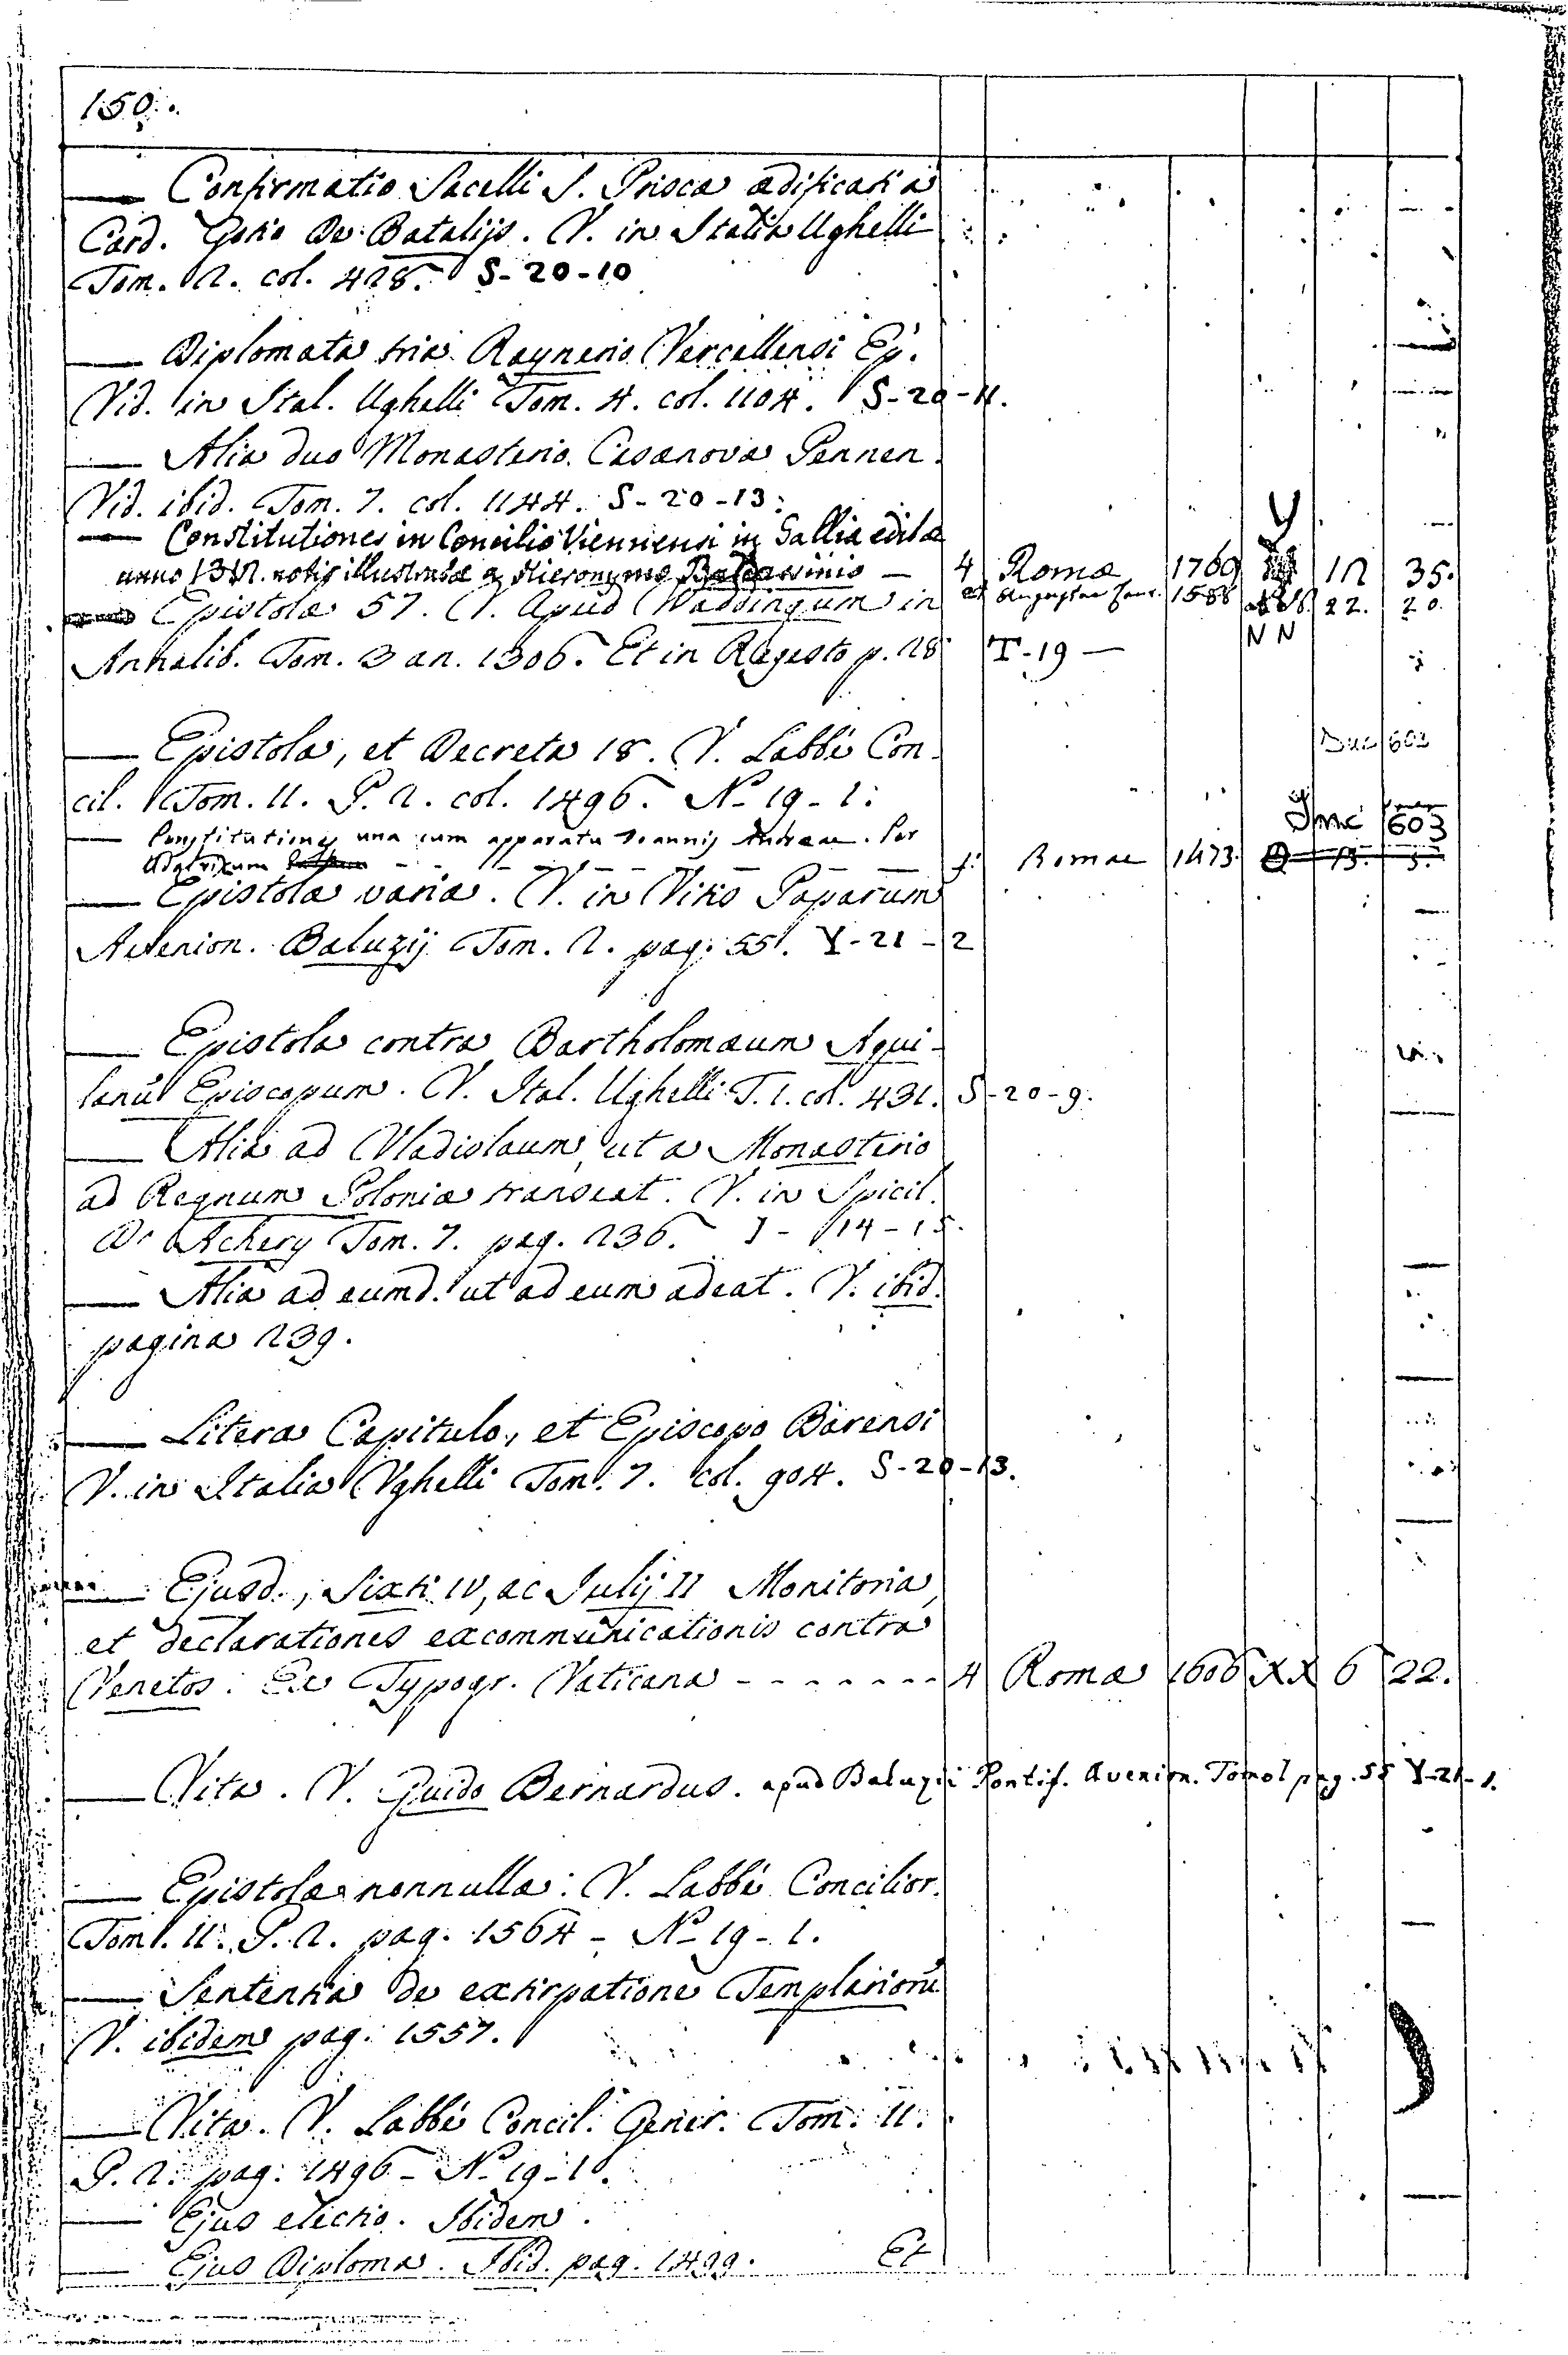 150.
— Confirmatio Sacelli S. Priscæ ædificati à
Card. Gotio De Batalijs. V. in Italia Ughelli
Tom. 2. col. 428. S-20-10
— Diplomata tria Raynerio Vercellensi Ep.
Vid. in Ital. Ughelli Tom. 4. col. 1104. S-20-11.
— Alia duo Monasterio Casænovæ Pennen.
Vid. ibid. Tom. 7. col. 1144. S-20-13.
— Constitutiones in Concilio Viennensi in Gallia editæ
anno 1312. notis illustratæ a Hieronymo — 4 Romæ 1769 Y 12 35.
Epistolæ 57. V. Apud Waddingum in 1588 22. 20.
Annalib. Tom. 3 an. 1306. Et in Regesto p. 28 T-19 — NN
— Epistolæ, et Decreta 18. V. Labbè Con-
cil. Tom. 11. P. 2. col. 1496. N-19-1. Inc 603
— Constitutiones una cum apparatu Ioannis Andreæ. Per
Udalricum f. Romae 1473.
— Epistolæ variæ. V. in Vitis Paparum
Avenion. Baluzij Tom. 2. pag. 55. Y-21-2
— Epistola contra Bartholomæum Aqui-
lanũ Episcopum. V. Ital. Ughelli T. 1. col. 431. S-20-9.
— Alia ad Vladislaum, ut a Monasterio
ad Regnum Poloniæ transeat. V. in Spicil.
D' Achery Tom. 7. pag. 236. I-14-15.
— Alia ad eumd. ut ad eum adeat. V. ibid.
pagina 239.
— Literæ Capitulo, et Episcopo Barensi
V. in Italia Vghelli Tom. 7. col. 904. S-20-13.
— Ejusd., Sixti IV, ac Julij II Monitoria,
et declarationes excommunicationis contra
Venetos. Ex Typogr. Vaticana - - - - - - - 4 Romæ 1606 XX 6 22.
— Vita. V. Guido Bernardus. apud Baluzii Pontif. Avenion. Tomo 1 pag. 55 Y-21-1.
— Epistolæ nonnullæ. V. Labbè Concilior.
Tom. 11. P. 2. pag. 1564 - N-19-1.
— Sententia de extirpatione Templariorũ
V. ibidem pag. 1557.
— Vita. V. Labbè Concil. Gener. Tom. 11.
P. 2. pag. 1496 - N-19-1.
— Ejus electio. Ibidem.
— Ejus Diploma. Ibid. pag. 1499. Et